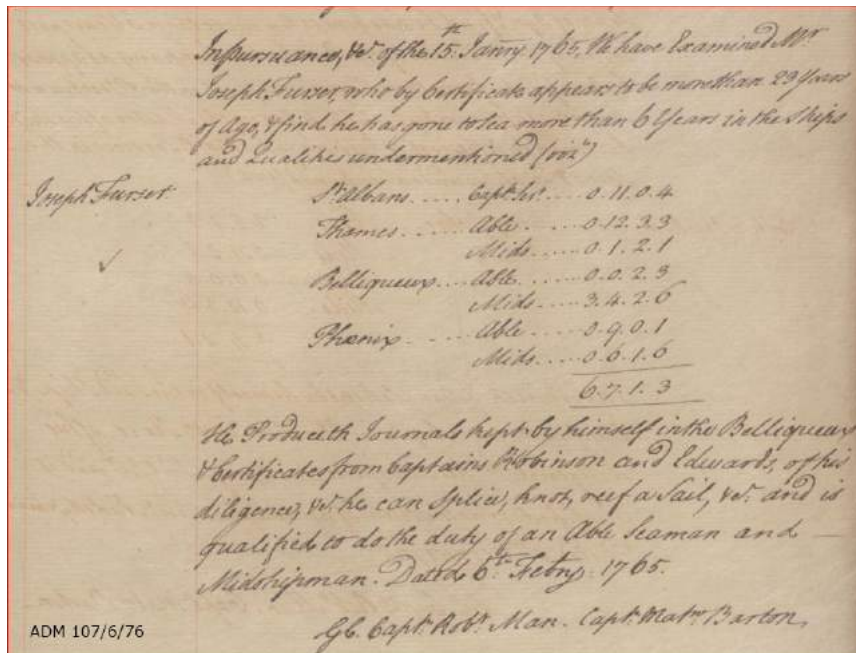 In pursuance, &c. of the 15th. Janry 1765, We have Examined Mr
Joseph Furser, who by Certificate appears to be more than 29 Years
of Age, & find he has gone to Sea more than 6 Years in the Ships
and Qualities undermentioned (vizt)
Joseph Furser
St Albans .... Capts Servt .... 0. 11. 0. 4
Thames .... Able .... 0. 12. 3. 3
Mids .... 0. 1. 2. 1
Belliqueux .... Able .... 0. 0. 2. 3
Mids .... 3. 4. 2. 6
Phœnix .... Able .... 0. 9. 0. 1
Mids .... 0. 6. 1. 6
6. 7. 1. 3
He Produceth Journals kept by himself in the Belliqueux
& Certificates from Captains Robinson and Edwards, of his
diligence, &c. he can Splice, knot, reef a Sail, &c. and is
qualified to do the duty of an Able Seaman and
Midshipman. Dated 6th Febry. 1765.
GC. Capt. Robt Man. Capt. Matw Barton
ADM 107/6/76